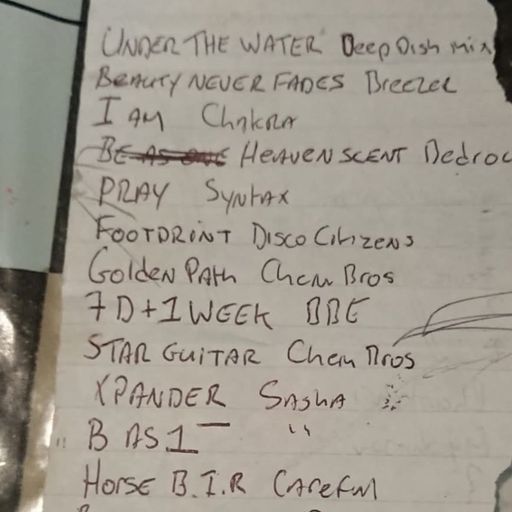 UNDER THE WATER Deep Dish mix
BEAUTY NEVER FADES Breezer
I AM Chakra
BE AS ONE HEAVENSCENT Bedroc
PRAY SYNTAX
FOOTPRINT Disco Citizens
Golden Path Chem Bros
7 D + 1 WEEK BBE
STAR GUITAR Chem Bros
XPANDER SASHA
B AS 1 "
HORSE B.I.R CAREFUL